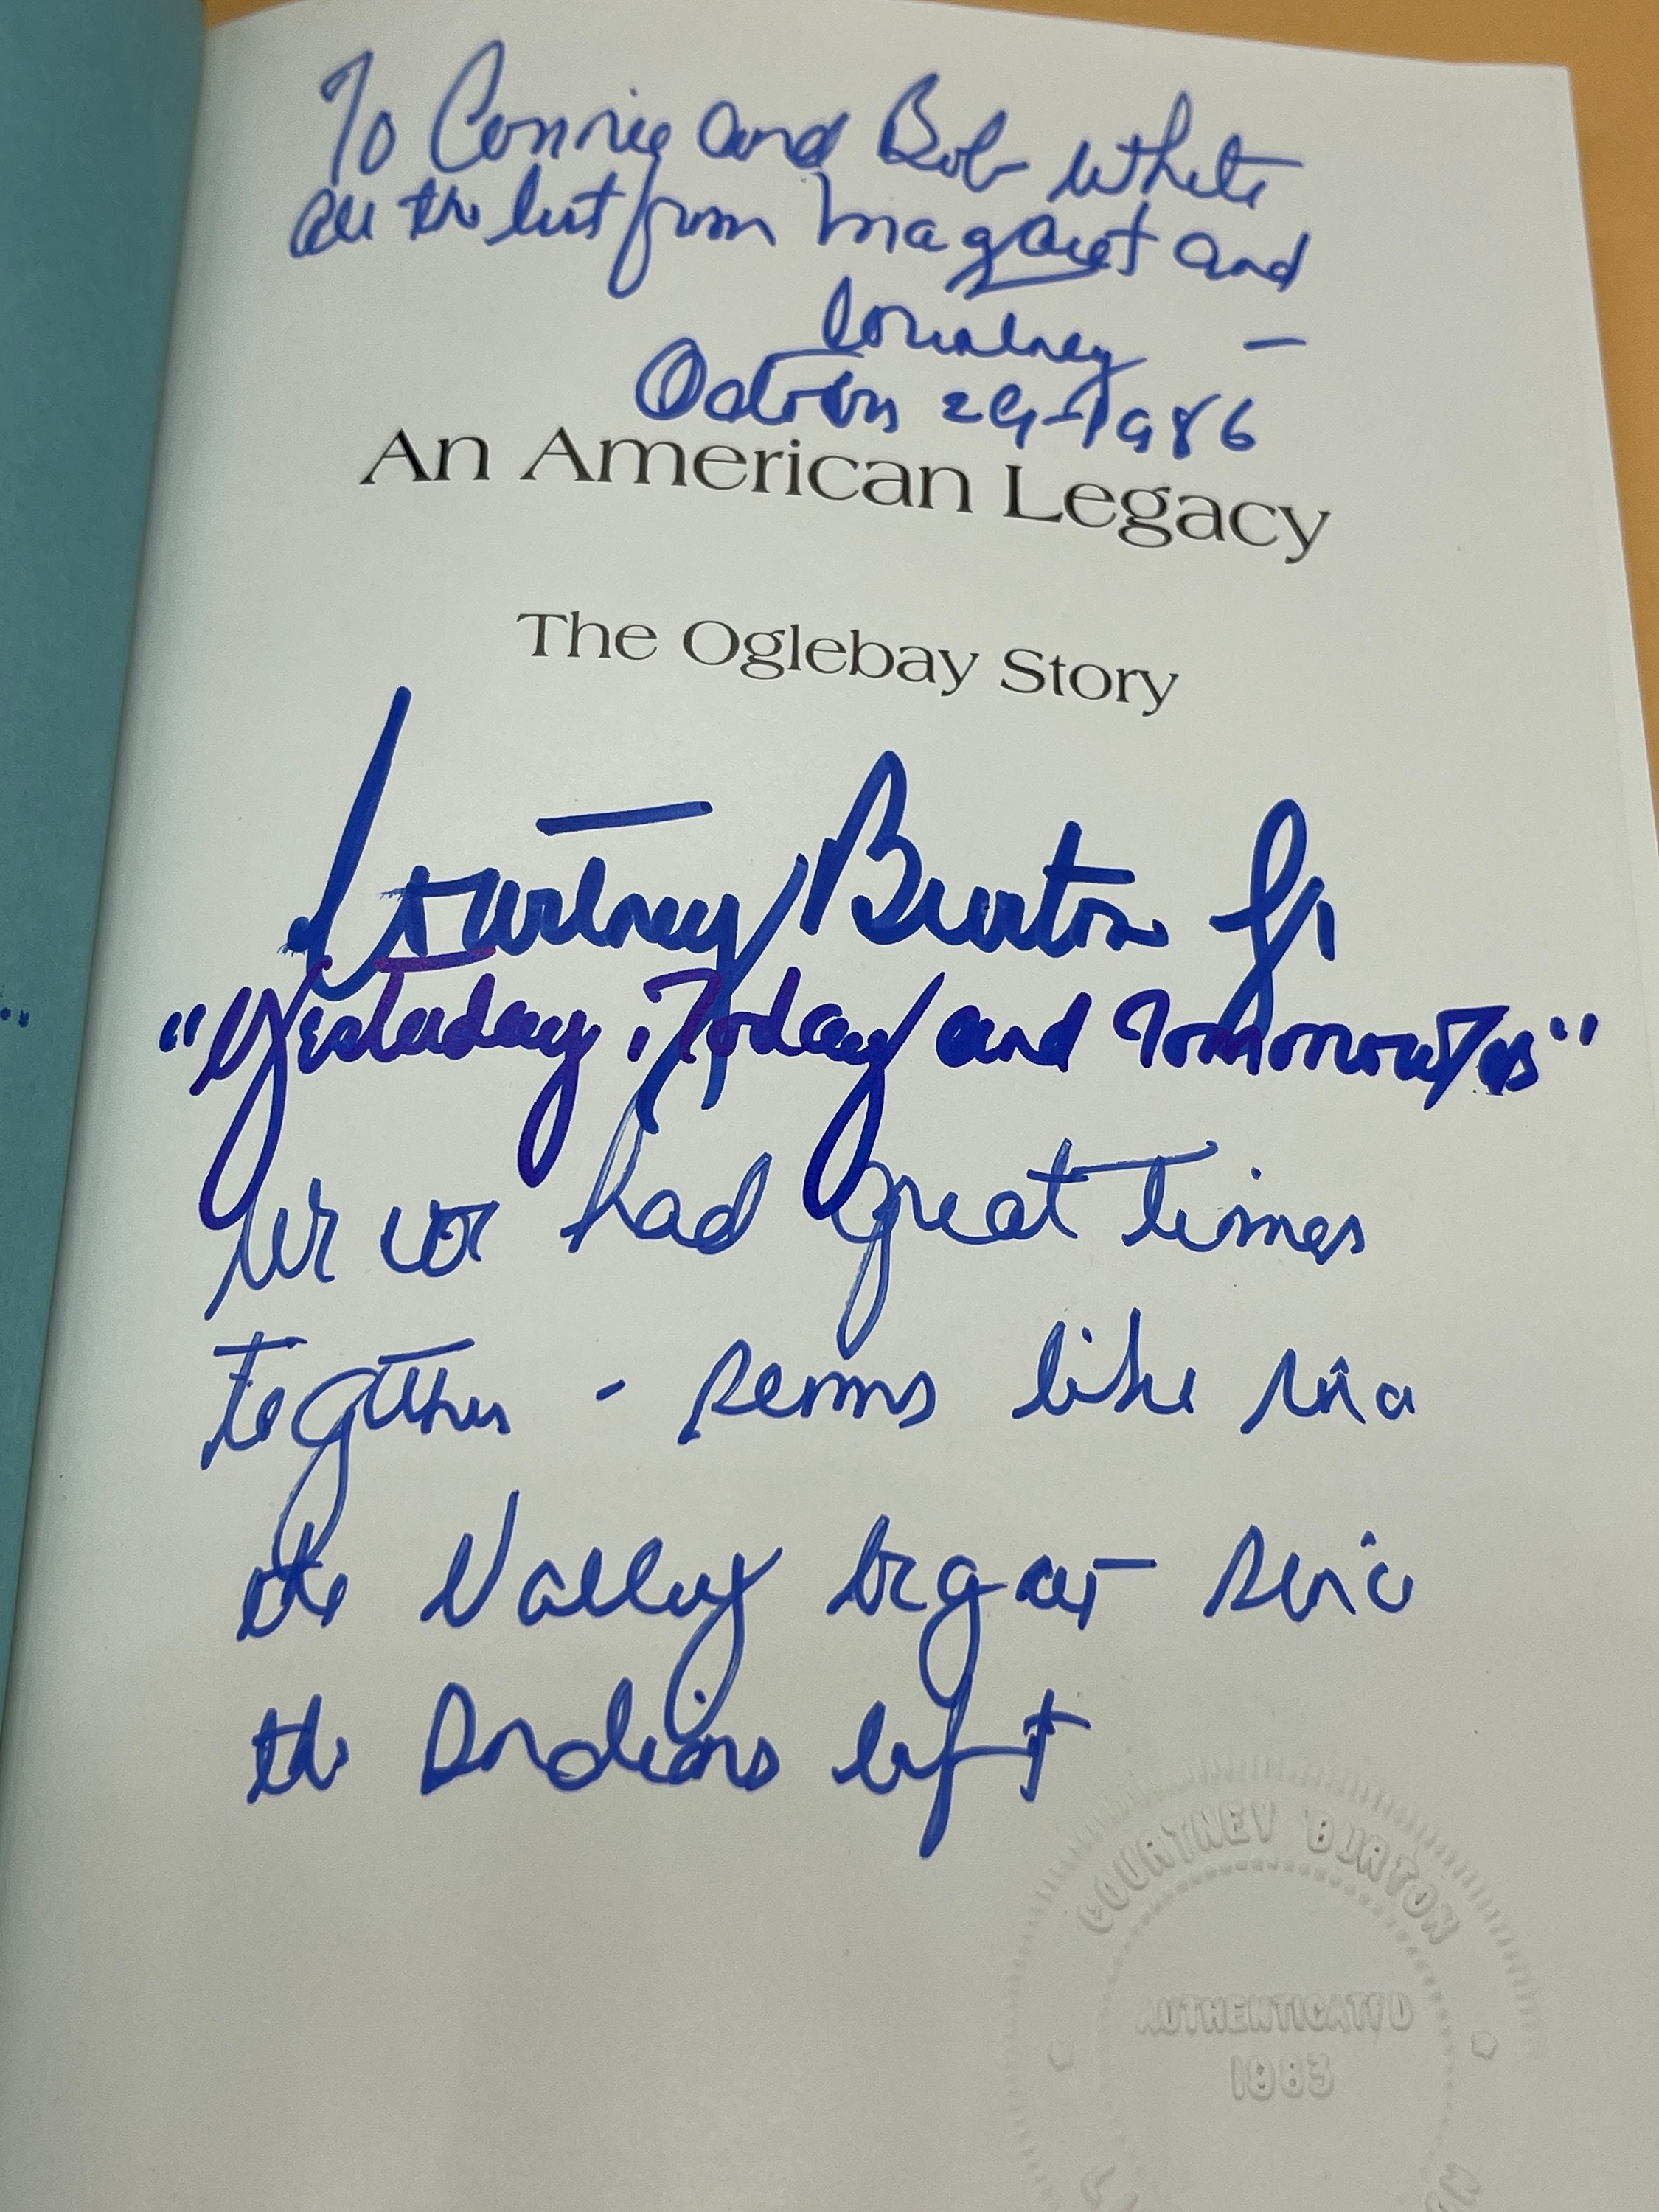 To Connie and Bob White
all the best from Margaret and
Courtney —
October 29-1986
An American Legacy
The Oglebay Story
Courtney Burton Jr
"Yesterday, Today and Tomorrows"
We had great times
together - seems like
the Valley began since
the Indians left
COURTNEY BURTON
AUTHENTICATED
1983